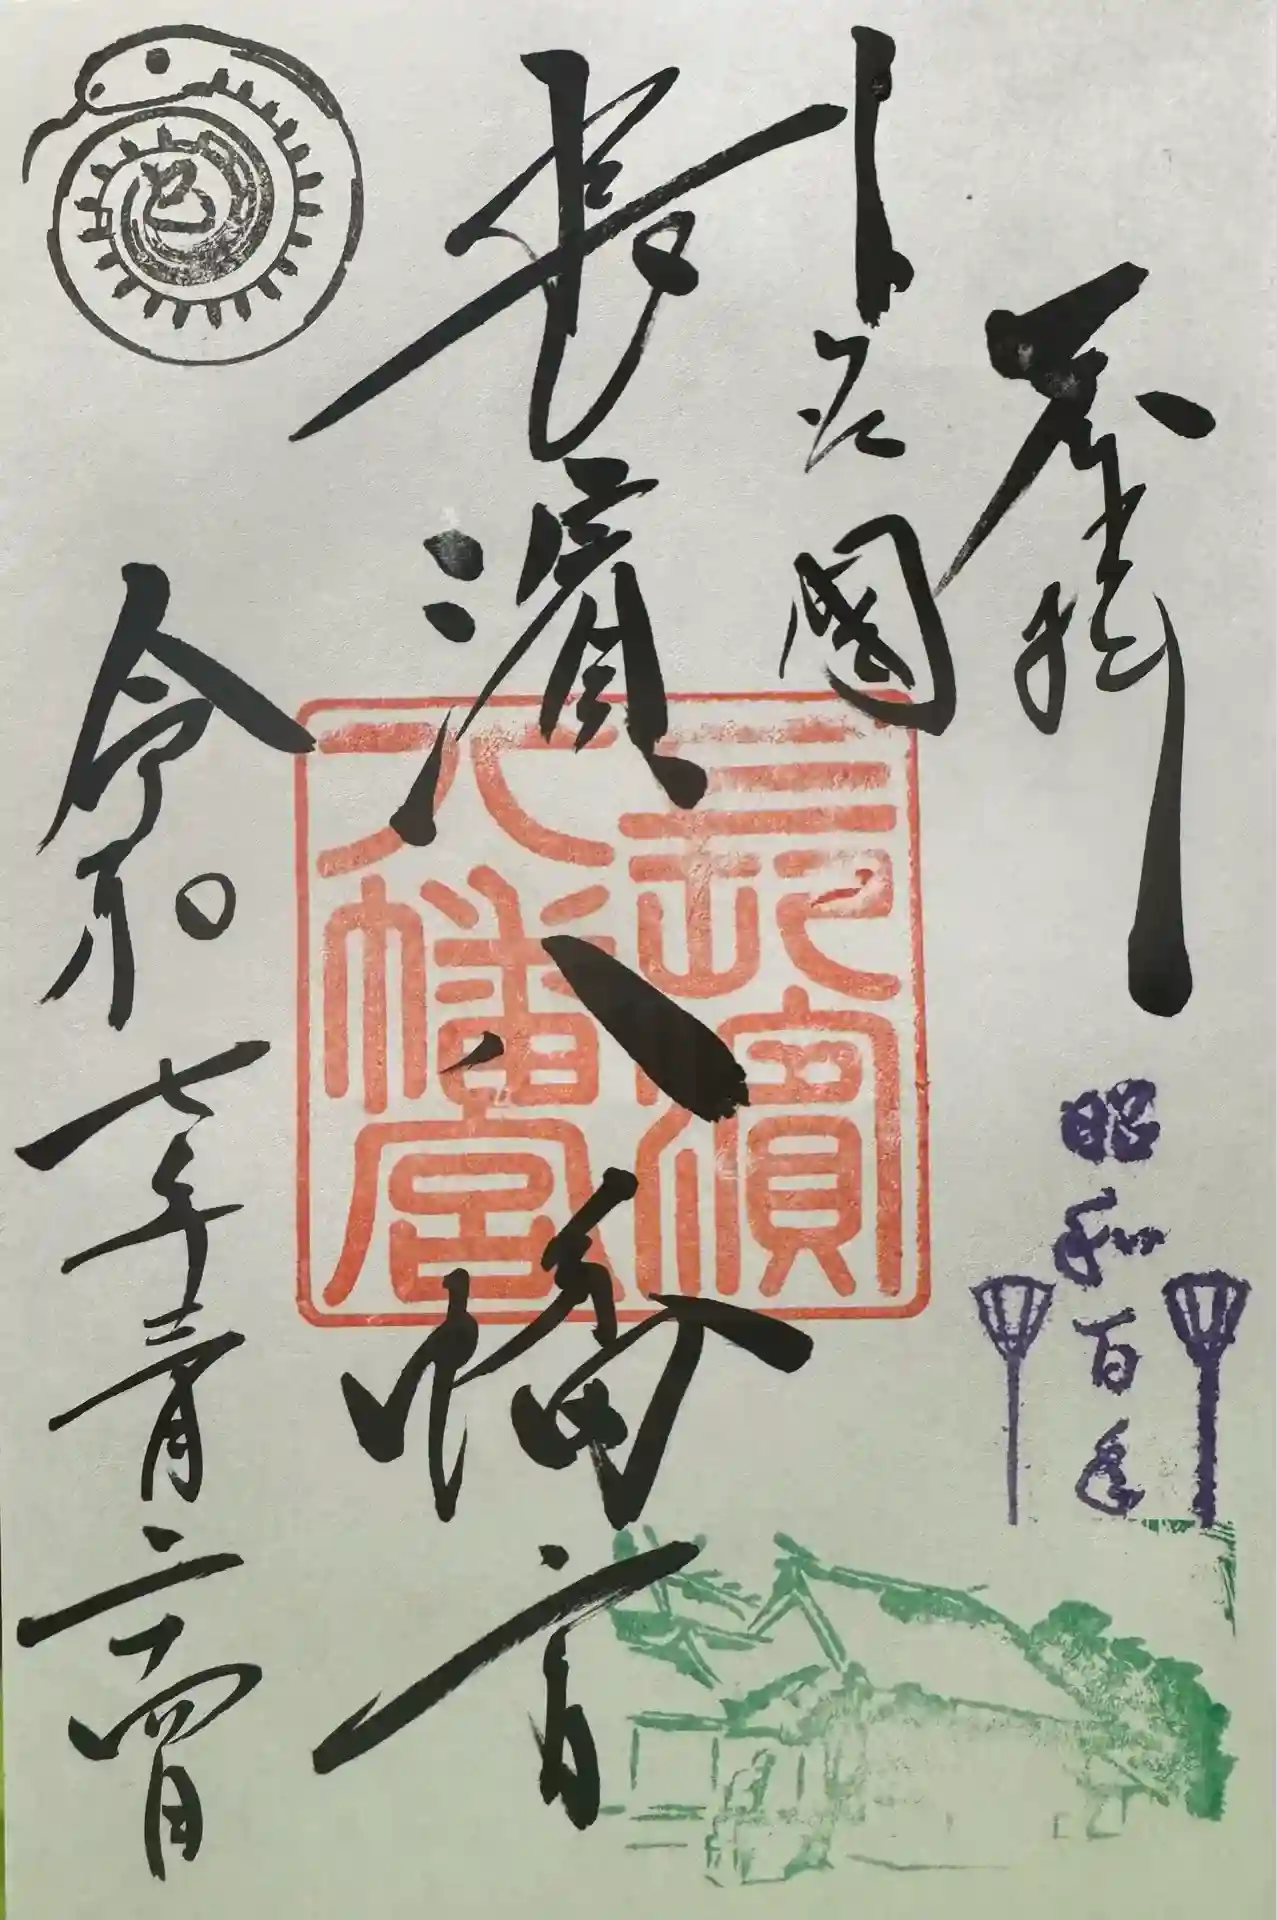 奉拝
國
長濱八幡宮
令和七年三月二十四日
長濱
八幡宮
昭和百年
巳